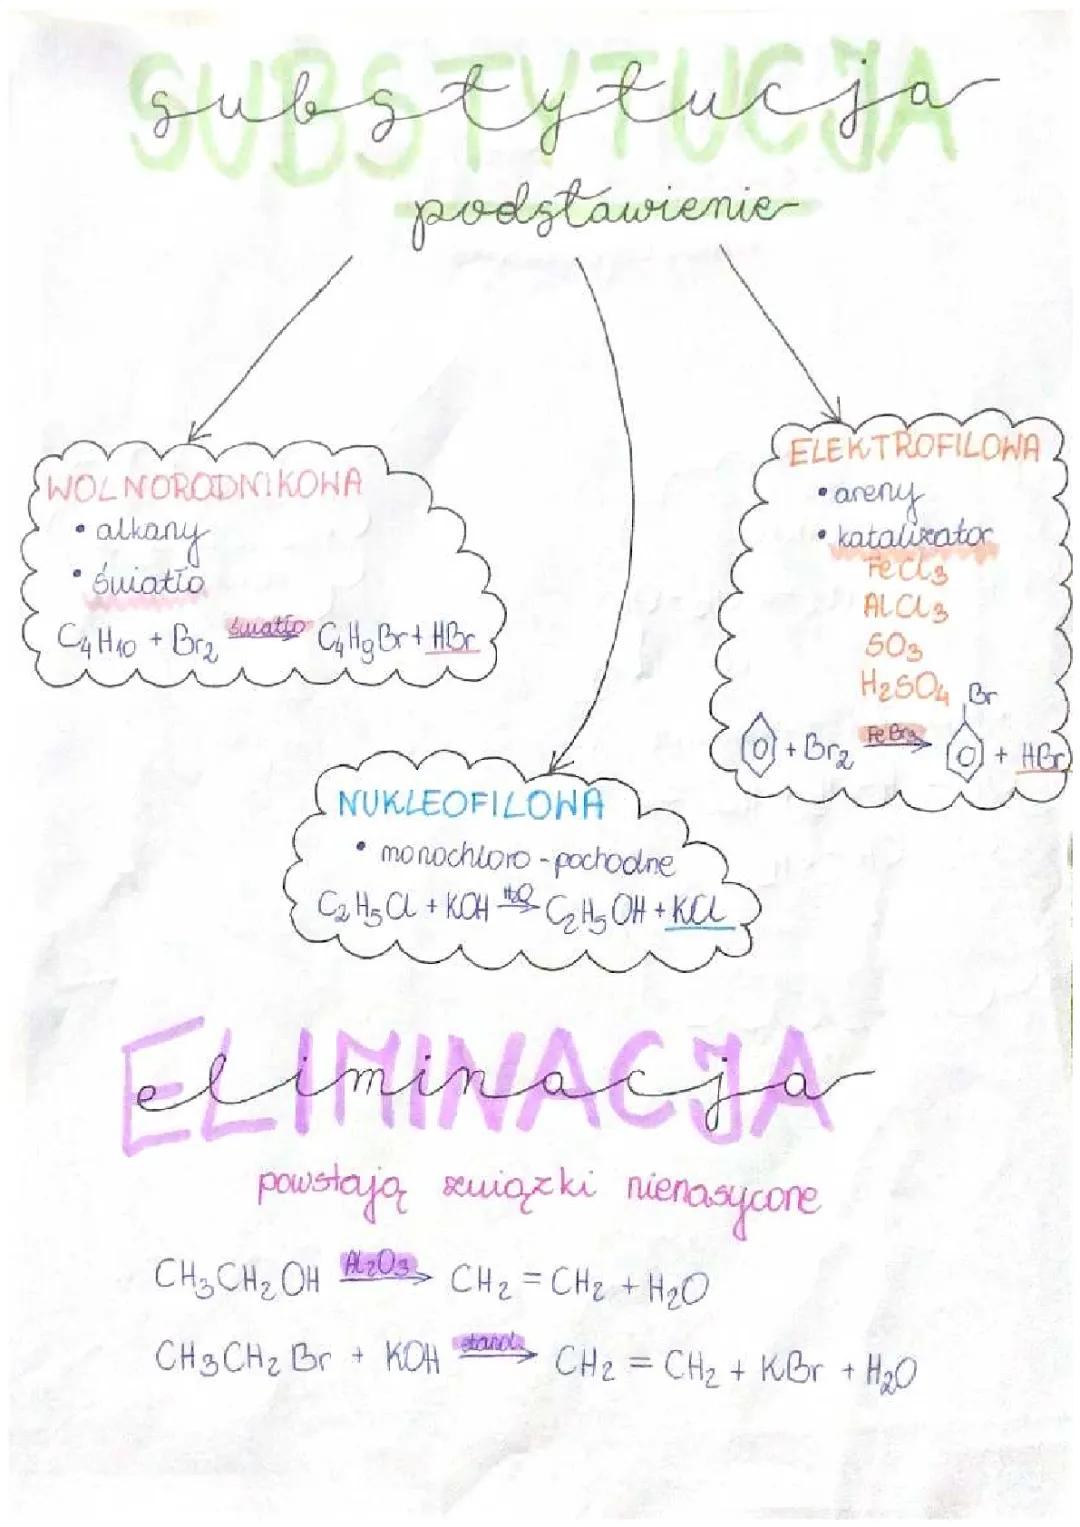 SUBSTYTUCJA
substytucja
podstawienie
WOLNORODNIKOWA
• alkany
• światło
C₄H₁₀ + Br₂ światło C₄H₉Br + HBr
ELEKTROFILOWA
• areny
• katalizator
FeCl₃
AlCl₃
SO₃
H₂SO₄
Br
+ Br₂ FeBr₃ → + HBr
NUKLEOFILOWA
• monochloro-pochodne
C₂H₅Cl + KOH H₂O → C₂H₅OH + KCl
ELIMINACJA
eliminacja
powstają związki nienasycone
CH₃CH₂OH Al₂O₃ → CH₂=CH₂ + H₂O
CH₃CH₂Br + KOH etanol → CH₂=CH₂ + KBr + H₂O